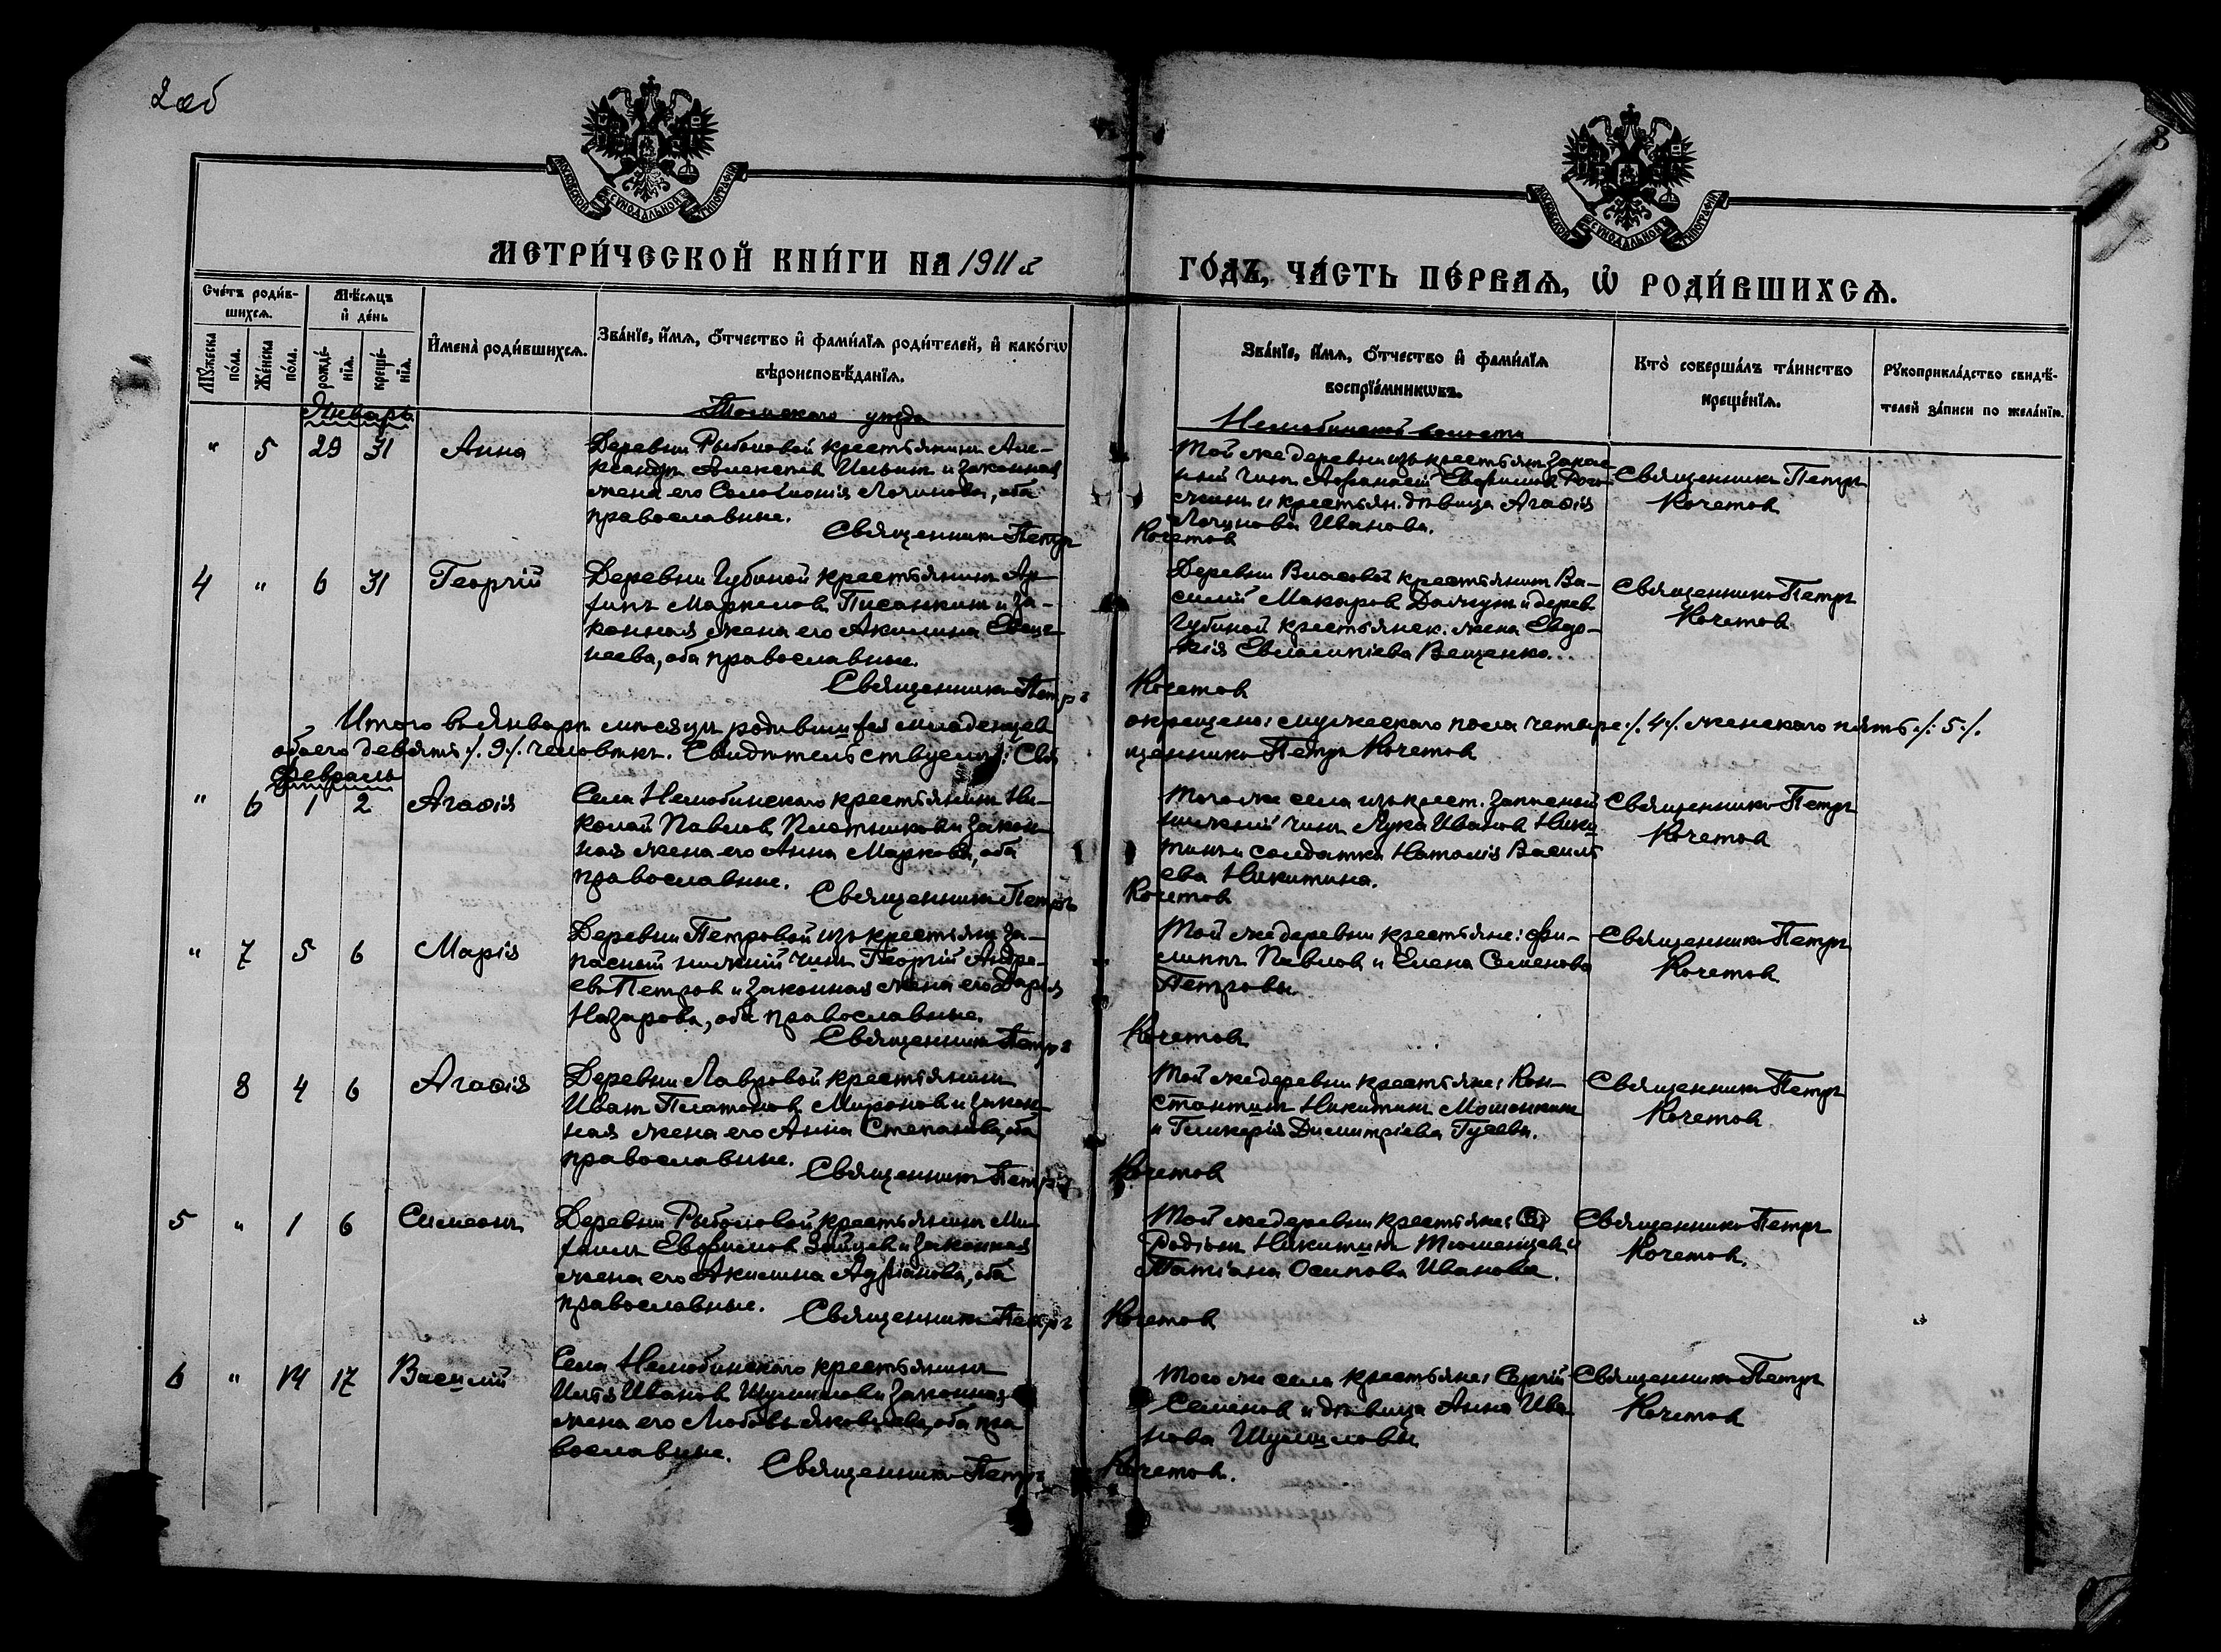 2 об
8
МОСКОВСКОЙ СУНОДАЛЬНОЙ ТИПОГРАФІИ
МОСКОВСКОЙ СУНОДАЛЬНОЙ ТИПОГРАФІИ
МЕТРИ́ЧЕСКОЙ КНИ́ГИ НА 1911 й
ГО́ДЪ, ЧА́СТЬ ПЕ́РВАѦ, Ѿ РОДИ́ВШИХСѦ.
Сче́тъ роди́в-
шихсѧ.
Мѣ́сѧцъ
и҆ де́нь
Мꙋжеска по́ла.
Же́нска по́ла.
рожде́-
нїѧ.
креще́-
нїѧ.
И҆мена̀ роди́вшихсѧ.
Зва́нїе, и҆́мѧ, ѻ҆́тчество и҆ фами́лїѧ роди́телей, и҆ како́гѡ
вѣроисповѣ́данїѧ.
Зва́нїе, и҆́мѧ, ѻ҆́тчество и҆ фами́лїѧ
воспрїе́мникѡвъ.
Кто̀ соверша́лъ та́инство
креще́нїѧ.
Рꙋкоприкла́дство свидѣ́-
телей за́писи по жела́нїю.
Январь
Томскаго уѣзда
Нелюбинской волости
" 5 29 31 Анна
Деревни Рыбаловой крестьянинъ Але-
ксандръ Алексѣевъ Ильинъ и законная
жена его Соломонія Логинова, оба
православные.
Священникъ Петръ Кочетовъ
Той же деревни изъ крестьян запас-
ный чинъ Афанасій Евфимовъ
и крестьян. дѣвица Агаѳія
Логинова Иванова.
Священникъ Петръ
Кочетовъ
4 " 6 31 Георгій
Деревни Губиной крестьянинъ Ар-
хипъ Маркеловъ Писанкинъ и за-
конная жена его Акилина
оба православные.
Священникъ Петръ Кочетовъ
Деревни Власовой крестьянинъ Ва-
силій Макаровъ и дерев.
Губиной крестьянск. жена Евдо-
кія Евлампіева Вещенко...
Священникъ Петръ
Кочетовъ
Итого въ Январѣ мѣсяцѣ родившихся младенцевъ окрещено: мужескаго пола четыре ./. 4 ./. женскаго пять ./. 5 ./.
обоего девять ./. 9 ./. человѣкъ. Свидѣтельствуемъ: Священникъ Петръ Кочетовъ
Февраль
" 6 1 2 Агаѳія
Села Нелюбинскаго крестьянинъ Ни-
колай Павловъ Плотниковъ и закон-
ная жена его Анна Маркова, оба
православные.
Священникъ Петръ Кочетовъ
Того же села изъ крест. запасный
нижній чинъ Лука Ивановъ Ники-
тинъ и солдатка Наталія Василь-
ева Никитина.
Священникъ Петръ
Кочетовъ
" 7 5 6 Марія
Деревни Петровой изъ крестьян за-
пасный нижній чинъ Георгій Андре-
евъ Петровъ и законная жена его Дарія
Назарова, оба православные.
Священникъ Петръ Кочетовъ
Той же деревни крестьяне: Фи-
липпъ Павловъ и Елена Семенова
Петровы.
Священникъ Петръ
Кочетовъ
8 4 6 Агаѳія
Деревни Лавровой крестьянинъ
Иванъ Платоновъ Мироновъ и закон-
ная жена его Анна Степанова, оба
православные.
Священникъ Петръ Кочетовъ
Той же деревни крестьяне: Кон-
стантинъ Никитинъ Мошонкинъ
и Гликерія Димитріева Гусева.
Священникъ Петръ
Кочетовъ
5 " 1 6 Симеонъ
Деревни Рыбаловой крестьянинъ Ми-
хаилъ Евфимовъ Зайцевъ и законная
жена его Акилина Адріанова, оба
православные.
Священникъ Петръ Кочетовъ
Той же деревни крестьяне:
Родіонъ Никитинъ Тюменцевъ и
Татіана Осипова Иванова.
Священникъ Петръ
Кочетовъ.
6 " 14 17 Василій
Села Нелюбинскаго крестьянинъ
Илья Ивановъ Шумиловъ и законная
жена его Любовь Яковлева, оба пра
вославные.
Священникъ Петръ Кочетовъ.
Того же села крестьяне: Сергій
Семеновъ и дѣвица Анна Ива-
нова Шумиловы
Священникъ Петръ
Кочетовъ